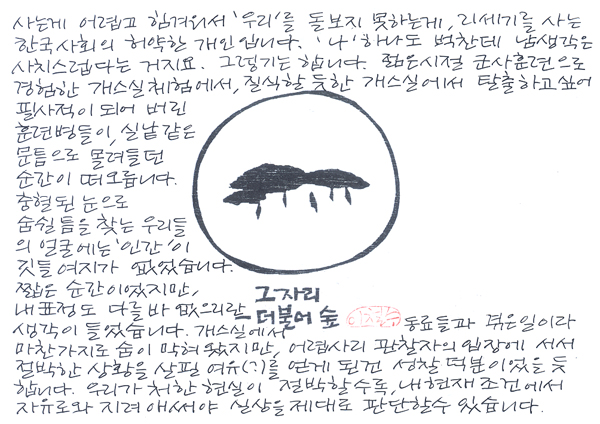 사는게 어렵고 힘겨워서 '우리'를 돌보지 못하는게, 21세기를 사는
한국사회의 허약한 개인입니다. '나'하나도 벅찬데 남생각은
사치스럽다는 거지요. 그렇기는 합니다. 젊은시절 군사훈련으로
경험한 개스실체험에서, 질식할 듯한 개스실에서 탈출하고 싶어
필사적이 되어 버린
훈련병들이, 실낱 같은
문틈으로 몰려들던
순간이 떠오릅니다.
충혈된 눈으로
숨쉴 틈을 찾는 우리들
의 얼굴에는 '인간'이
깃들 여지가 없었습니다.
짧은 순간이었지만,
내 표정도 다를 바 없으리란
생각이 들었습니다. 개스실에서
그 자리
- 더불어 숲
동료들과 겪은일이라
마찬가지로 숨이 막혀 왔지만, 어렵사리 관찰자의 입장에 서서
절박한 상황을 살필 여유(?)를 얻게 된건 성찰 덕분이었을 듯
합니다. 우리가 처한 현실이 절박할수록, 내 현재 조건에서
자유로와 지려 애써야 실상을 제대로 판단할수 있습니다.